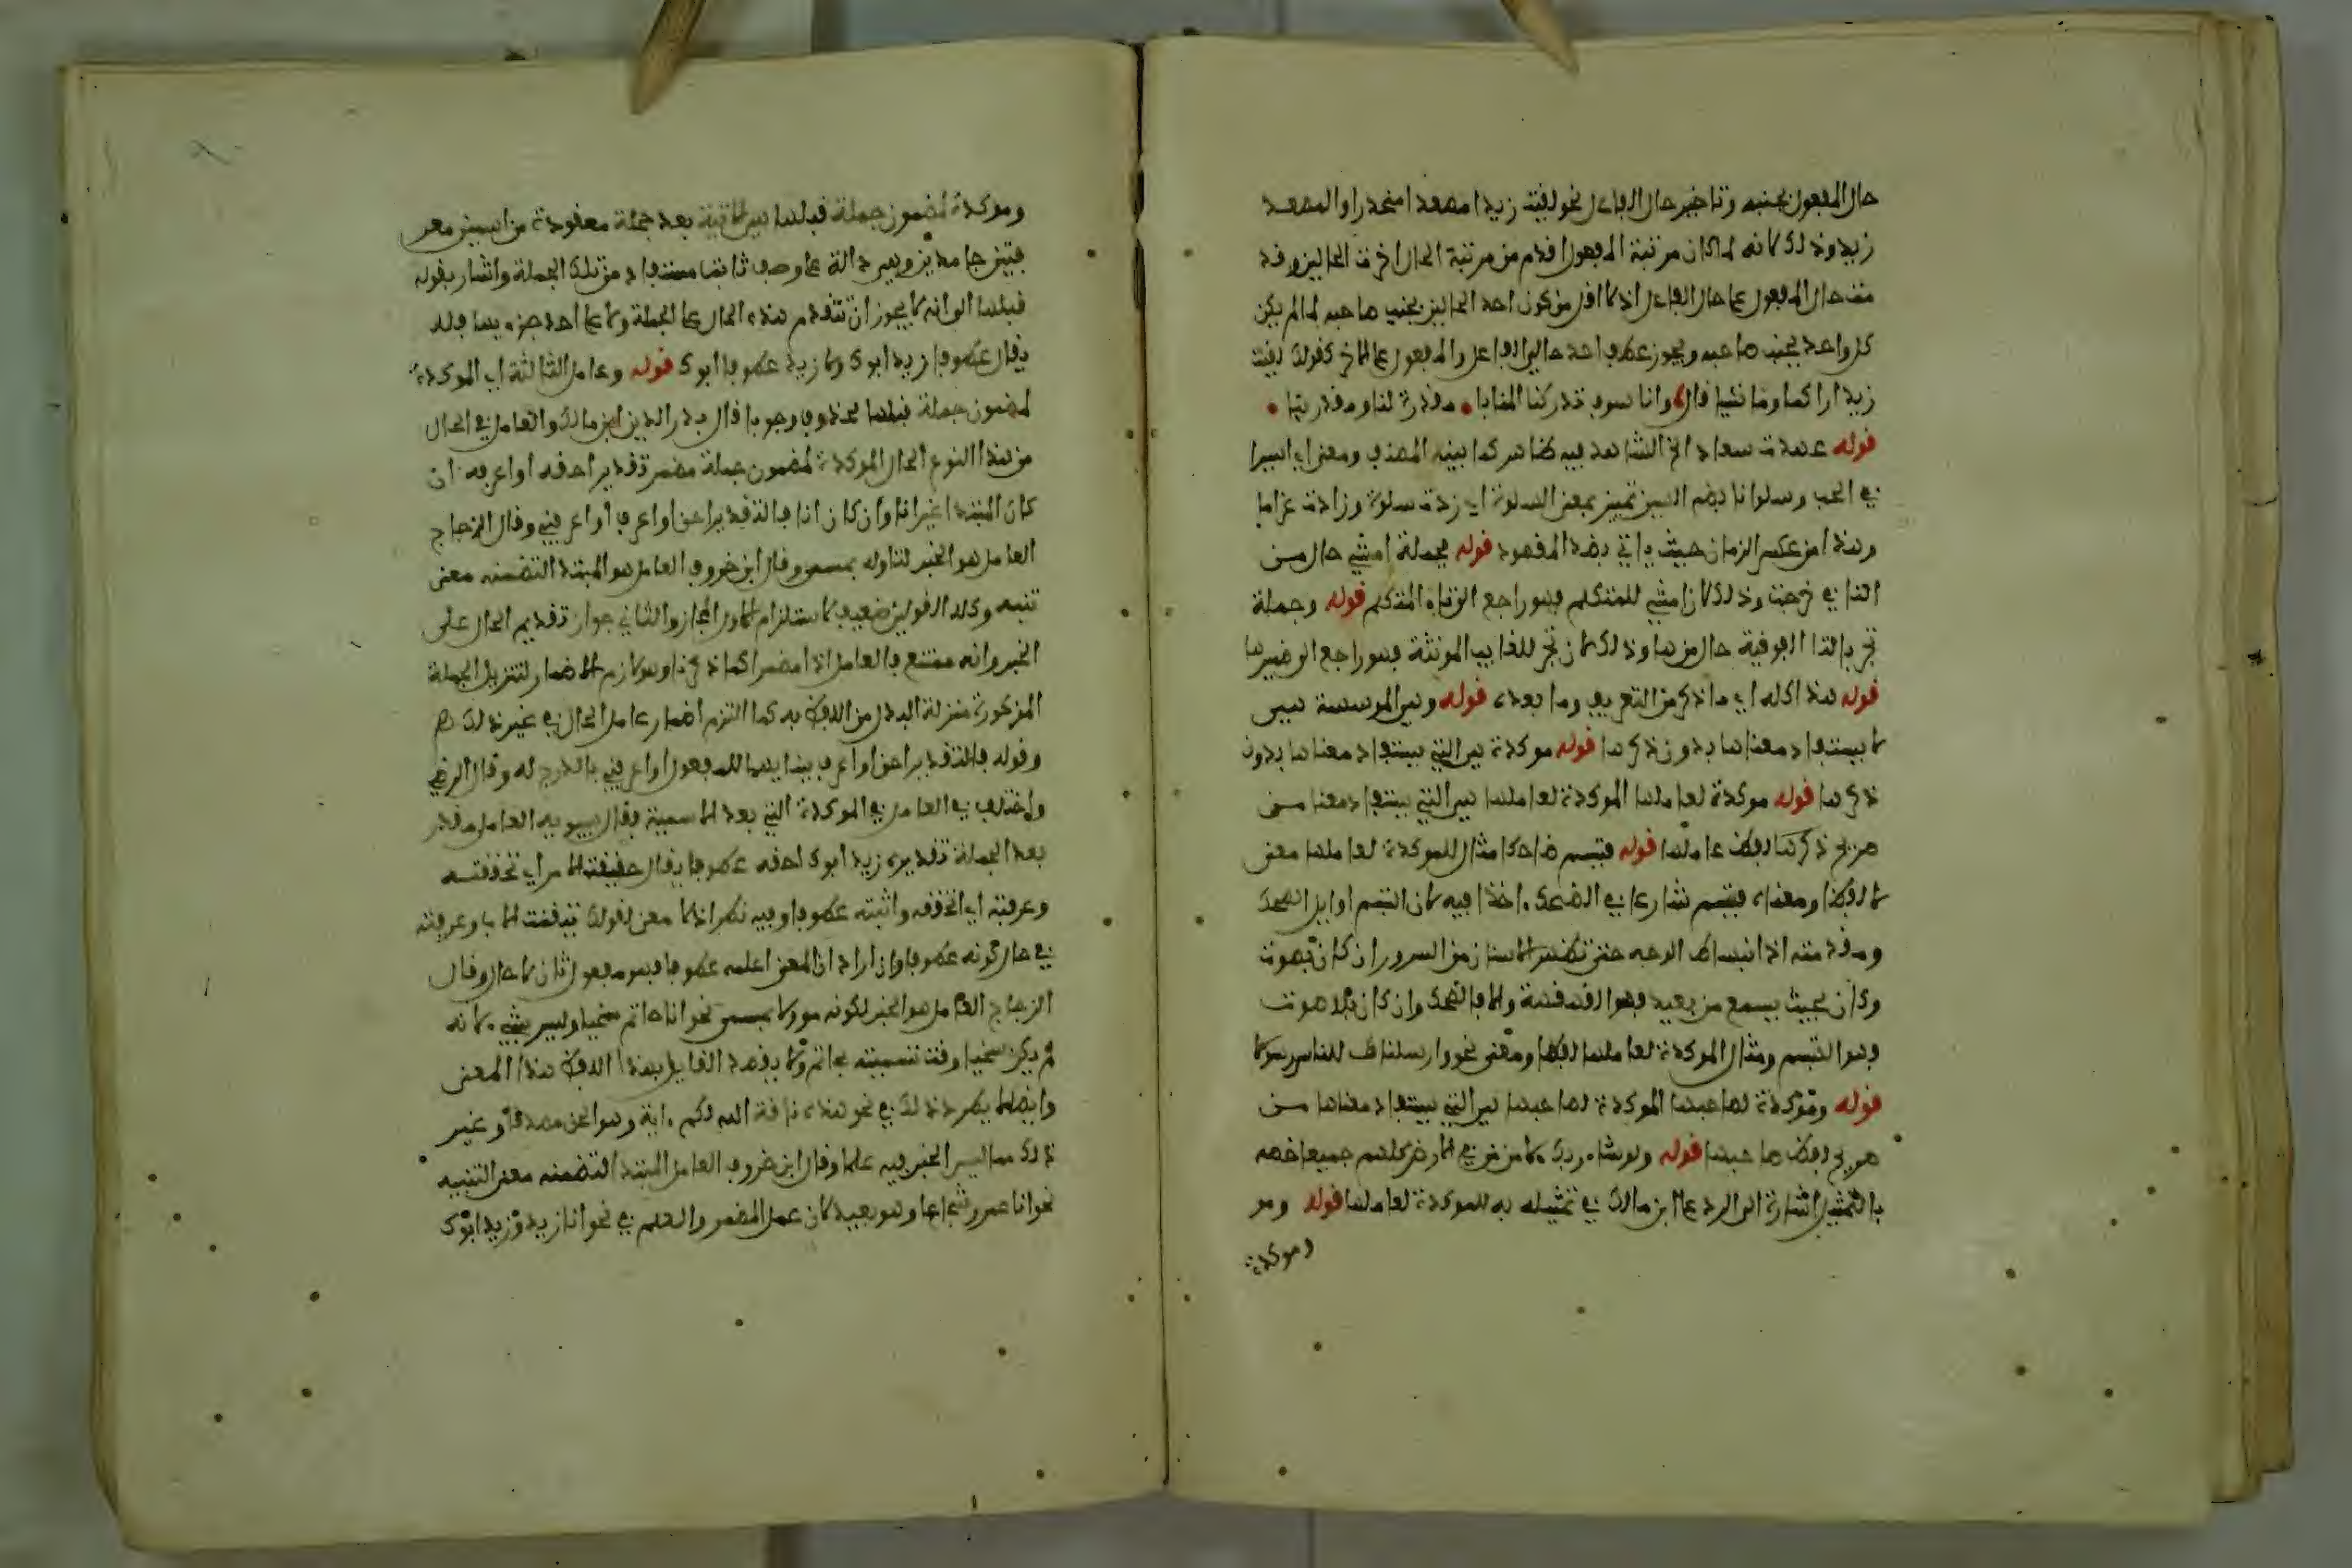 حال المفعول بجنبه وتاخير حال الفاعل نحو لقيت زيدا مصعدا منحدرا والمصعد
زيد وذلك لانه لما كان مرتبة المفعول اقدم من مرتبة الحال اخرت الحالين وقد
مت حال المفعول على حال الفاعل اذ لا اقل من كون احد الحالين بجنب صاحبه لما لم يكن
كل واحد بجنب صاحبه ويجوز عطف احد حالي الفاعل والمفعول على الاخر كقولك لقيت
زيدا راكبا وماشيا قال وانا سوف تدركنا المنايا • مقدرة لنا ومقدرينا •
قوله عهدت سعاد الخ الشاهد فيه ظاهر كما بينه المصنف ومعنى اي اسيرا
في الحب وسلوانا بضم السين تمييز بمعنى السلوة اي زدت سلوة وزادت غراما
وهذا من عكس الزمان حيث ياتي بضد المقصود قوله فجملة امشي حال من
التا في خرجت وذلك لان امشي للمتكلم فهو راجع الى تاء المتكلم قوله وجملة
تجر بالتا الفوقية حال من ها وذلك لان تجر للغايب المونثة فهو راجع الى ضميرها
قوله هذا كله اي ما ذكر من التعريف وما بعده قوله وهي الموسسة هي
لا يستفاد معناها بدون ذكرها قوله موكدة هي التي يستفاد معناها بدون
ذكرها قوله موكدة لعاملها الموكدة لعاملها هي التي يستفاد معنا من
صريح ذكرها لفظ عاملها قوله فتبسم ضاحكا مثال للموكدة لعاملها معنى
لا لفظا ومعناه فتبسم شارعا في الضحك اخذا فيه لان التبسم اوايل الضحك
ومقدمته اذ انبساط الوجه حتى تظهر الاسنان من السرور ان كان بصوت
وكان بحيث يسمع من بعيد فهو القهقهة والا فالضحك وان كان بلا صوت
فهو التبسم ومثال الموكدة لعاملها لفظا ومعنى نحو وارسلناك للناس رسولا
قوله وموكدة لصاحبها الموكدة لصاحبها هي التي يستفاد معناها من
صريح لفظ صاحبها قوله ولو شاء ربك لامن من في الارض كلهم جميعا خصه
بالتمثيل اشارة الى الرد على ابن مالك في تمثيله به للموكدة لعاملها قوله ومو
وموكدة
وموكدة لمضمون جملة قبلها هي الاتية بعد جملة معقودة من اسمين معر
فتين جامدين وهي دالة على وصف ثابت مستفاد من تلك الجملة واشار بقوله
قبلها الى انه لا يجوز ان تتقدم هذه الحال على الجملة ولا على احد جزءيها فلا
يقال عطوفا زيد ابوك ولا زيد عطوفا ابوك قوله وعامل الثالثة اي الموكدة
لمضمون جملة قبلها محذوف وجوبا قال بدر الدين ابن مالك والعامل في الحال
من هذا النوع الحال الموكدة لمضمون جملة مضمر تقديره احقه او اعرفه ان
كان المبتدا غير انا وان كان انا فالتقدير احق او اعرف او اعرفني وقال الزجاج
العامل هو الخبر لتاوله بمسمى وقال ابن خروف العامل هو المبتدا لتضمنه معنى
تنبه وكلا القولين ضعيف لاستلزام الاول المجاز والثاني جواز تقديم الحال على
الخبر وانه ممتنع فالعامل اذا مضمر كما ذكرنا وهو لازم الاضمار لتنزيل الجملة
المذكورة منزلة البدل من اللفظ به كما التزم اضمار عامل الحال في غير ذلك اهـ
وقوله فالتقدير احق او اعرف ببنايهما للمفعول او اعرفني بالدرج له وقال الرضي
واختلف في العامل في الموكدة التي بعد الاسمية فقال سيبويه العامل مقدر
بعد الجملة تقديره زيد ابوك احقه عطوفا يقال حققت الامر اي تحققته
وعرفته اي اتحققه واثبته عطوفا وفيه نظر اذ لا معنى لقولك تيقنت الاب وعرفته
في حال كونه عطوفا وان اراد ان المعنى اعلمه عطوفا فهو مفعول ثان لا حال وقال
الزجاج العامل هو الخبر لكونه موولا بمسمى نحو انا حاتم سخيا وليس بشيء لانه
لم يكن سخيا وقت تسميته بحاتم ولا يقصد القايل بهذا اللفظ هذا المعنى
وايضا لا يطرد ذلك في نحو هذه ناقة الله لكم ءاية وهو الحق مصدقا وغير
ذلك مما ليس الخبر فيه علما وقال ابن خروف العامل المبتدا لتضمنه معنى التنبيه
نحو انا عمرو شجاعا وهو بعيد لان عمل المضمر والعلم في نحو انا زيد وزيد ابوك